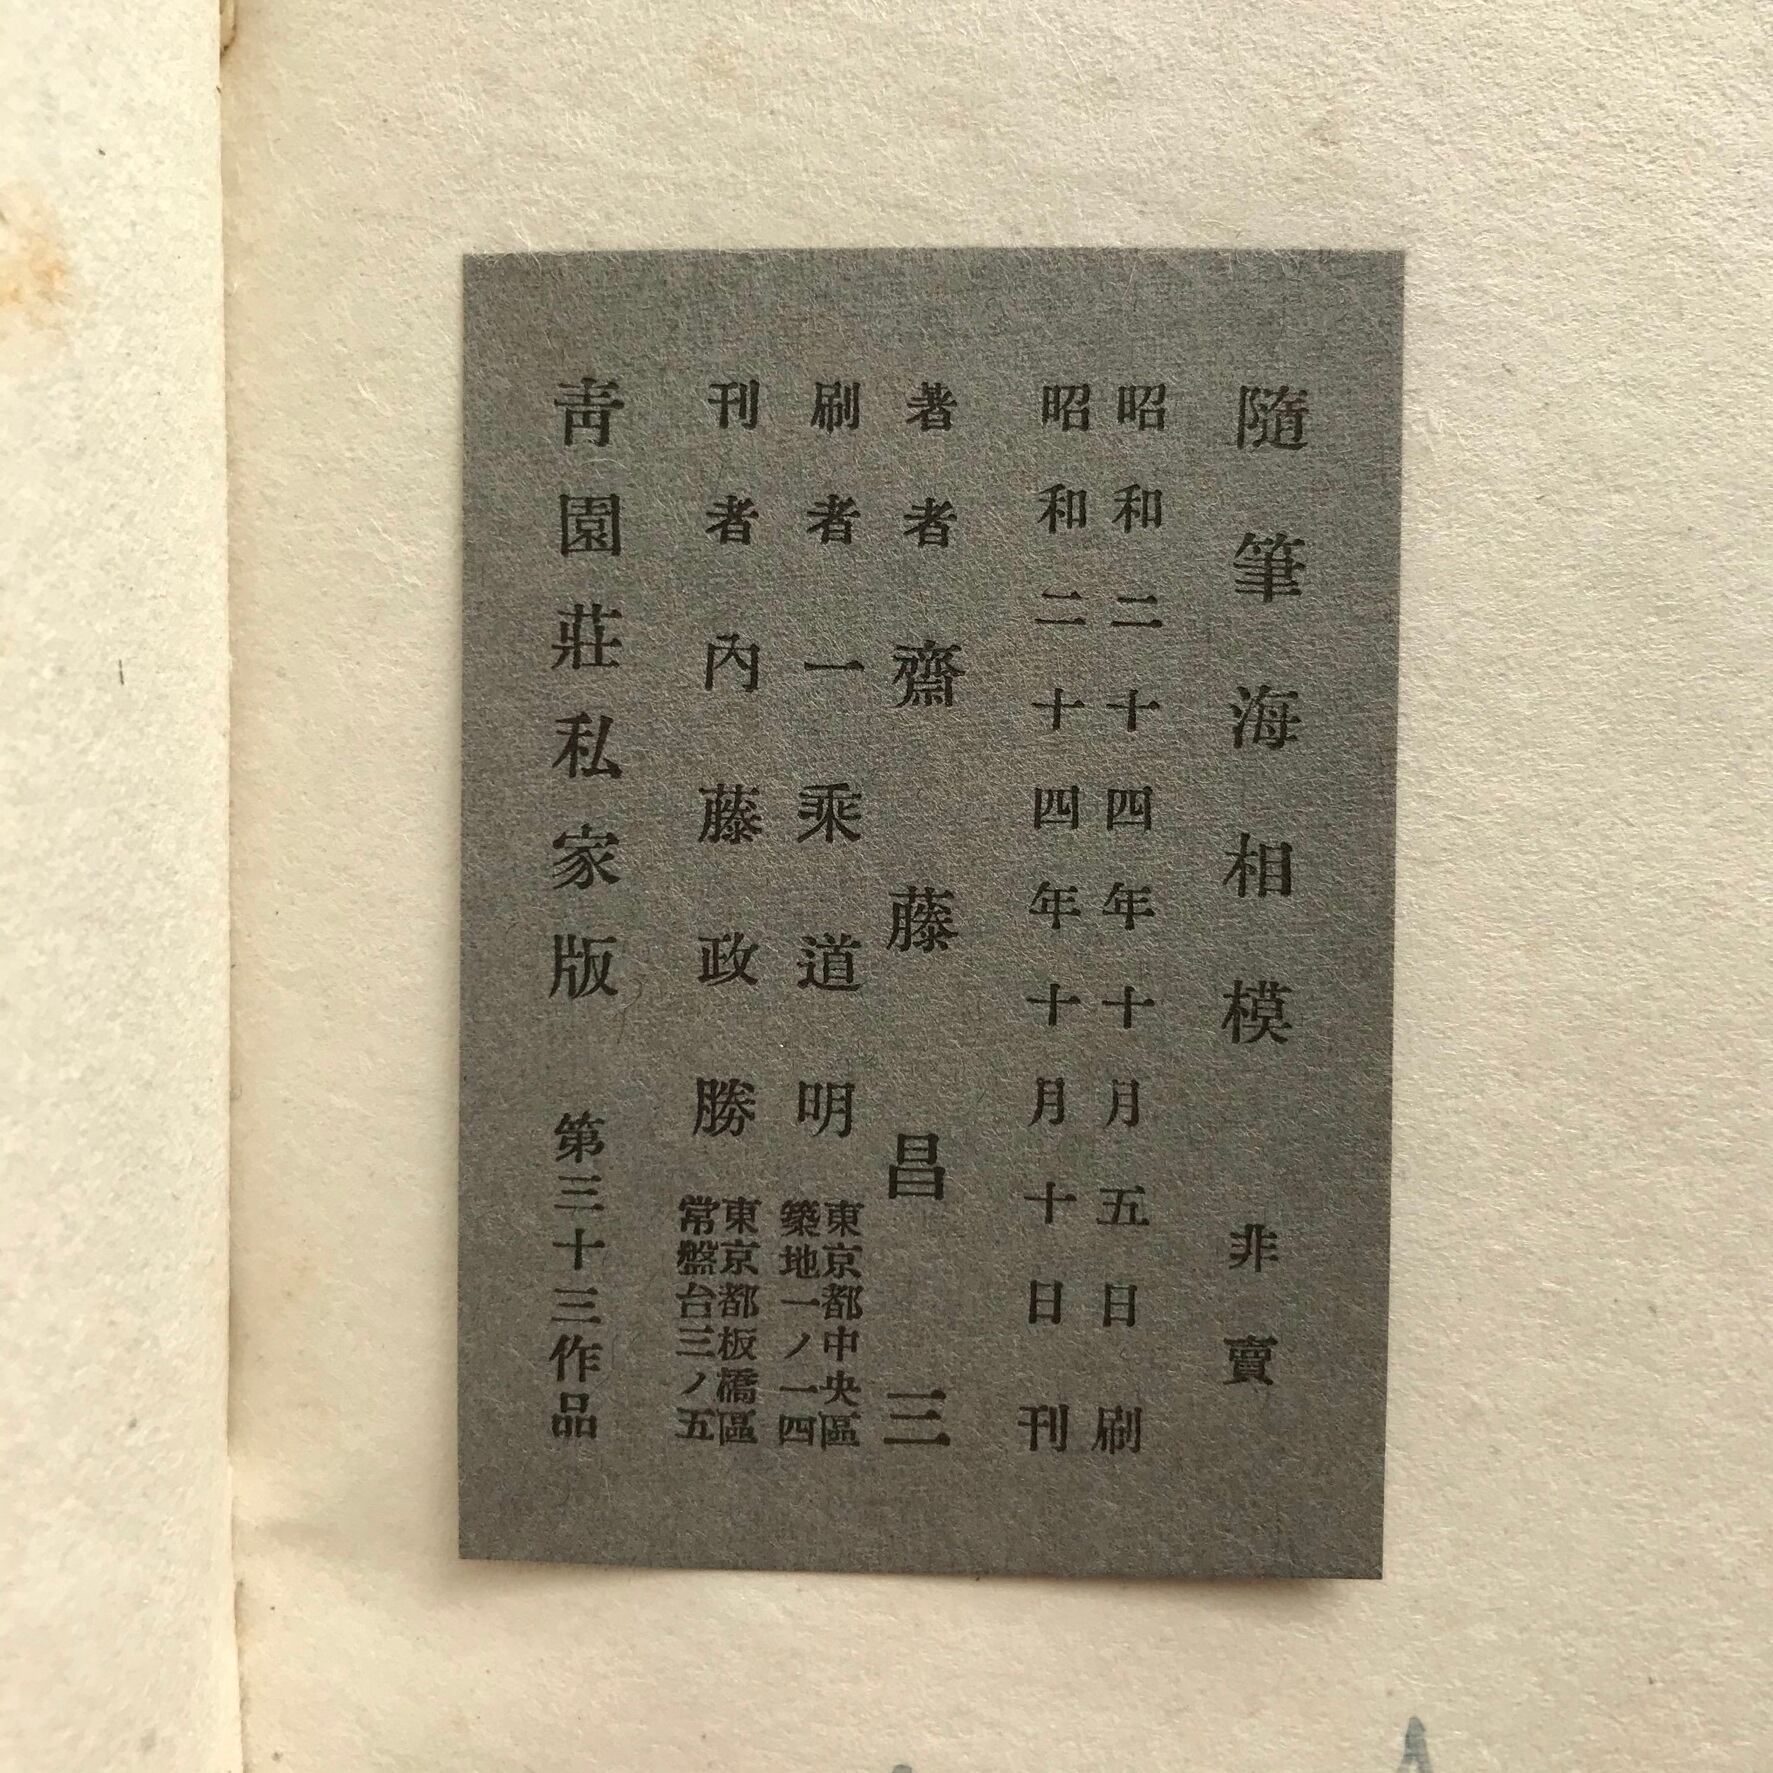 隨筆海相模　非賣
昭和二十四年十月五日刷
昭和二十四年十月十日刊
著者　齋藤昌三
刷者　一乘道明　東京都中央區
築地一ノ一四
刊者　內藤政勝　東京都板橋區
常盤台三ノ五
靑園莊私家版　第三十三作品